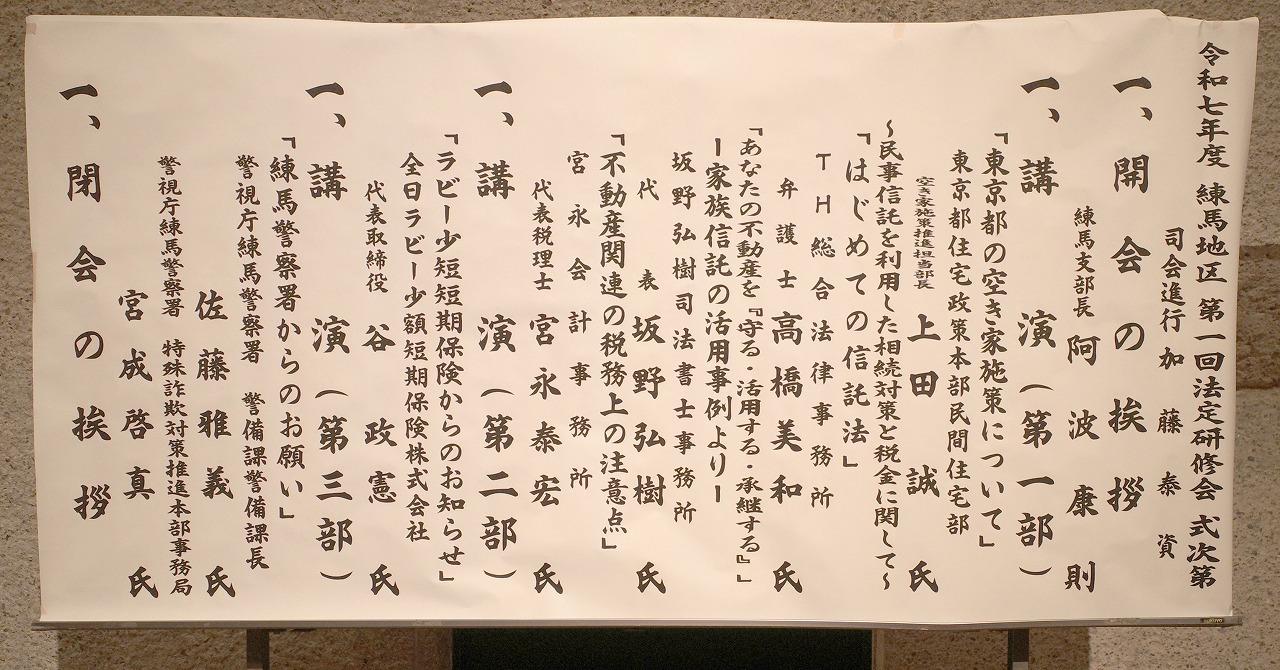 令和七年度 練馬地区 第一回法定研修会 式次第
司会進行 加藤泰資
一、開会の挨拶
練馬支部長 阿波康則
一、講演(第一部)
『東京都の空き家施策について』
東京都住宅政策本部民間住宅部
空き家施策推進担当部長 上田誠氏
～民事信託を利用した相続対策と税金に関して～
『はじめての信託法』
TH総合法律事務所
弁護士 高橋美和氏
『あなたの不動産を『守る・活用する・承継する』』
ー家族信託の活用事例よりー
坂野弘樹司法書士事務所
代表 坂野弘樹氏
『不動産関連の税務上の注意点』
宮永会計事務所
代表税理士 宮永泰宏氏
一、講演(第二部)
『ラビー少短短期保険からのお知らせ』
全日ラビー少額短期保険株式会社
代表取締役 谷政憲氏
一、講演(第三部)
『練馬警察署からのお願い』
警視庁練馬警察署 警備課警備課長
佐藤雅義氏
警視庁練馬警察署 特殊詐欺対策推進本部事務局
宮成啓真氏
一、閉会の挨拶